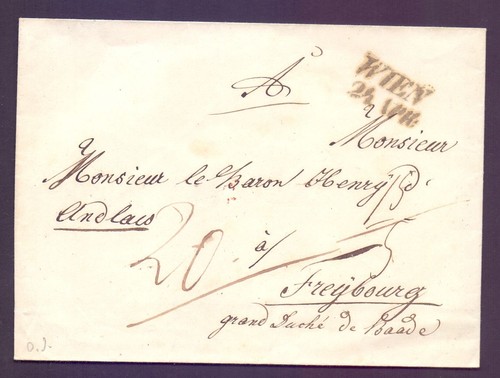 WIEN
24 APR.
A
Monsieur
Monsieur le Baron Henry d'
Andlaw
20
à
Freÿbourg
grand Duché de Baade